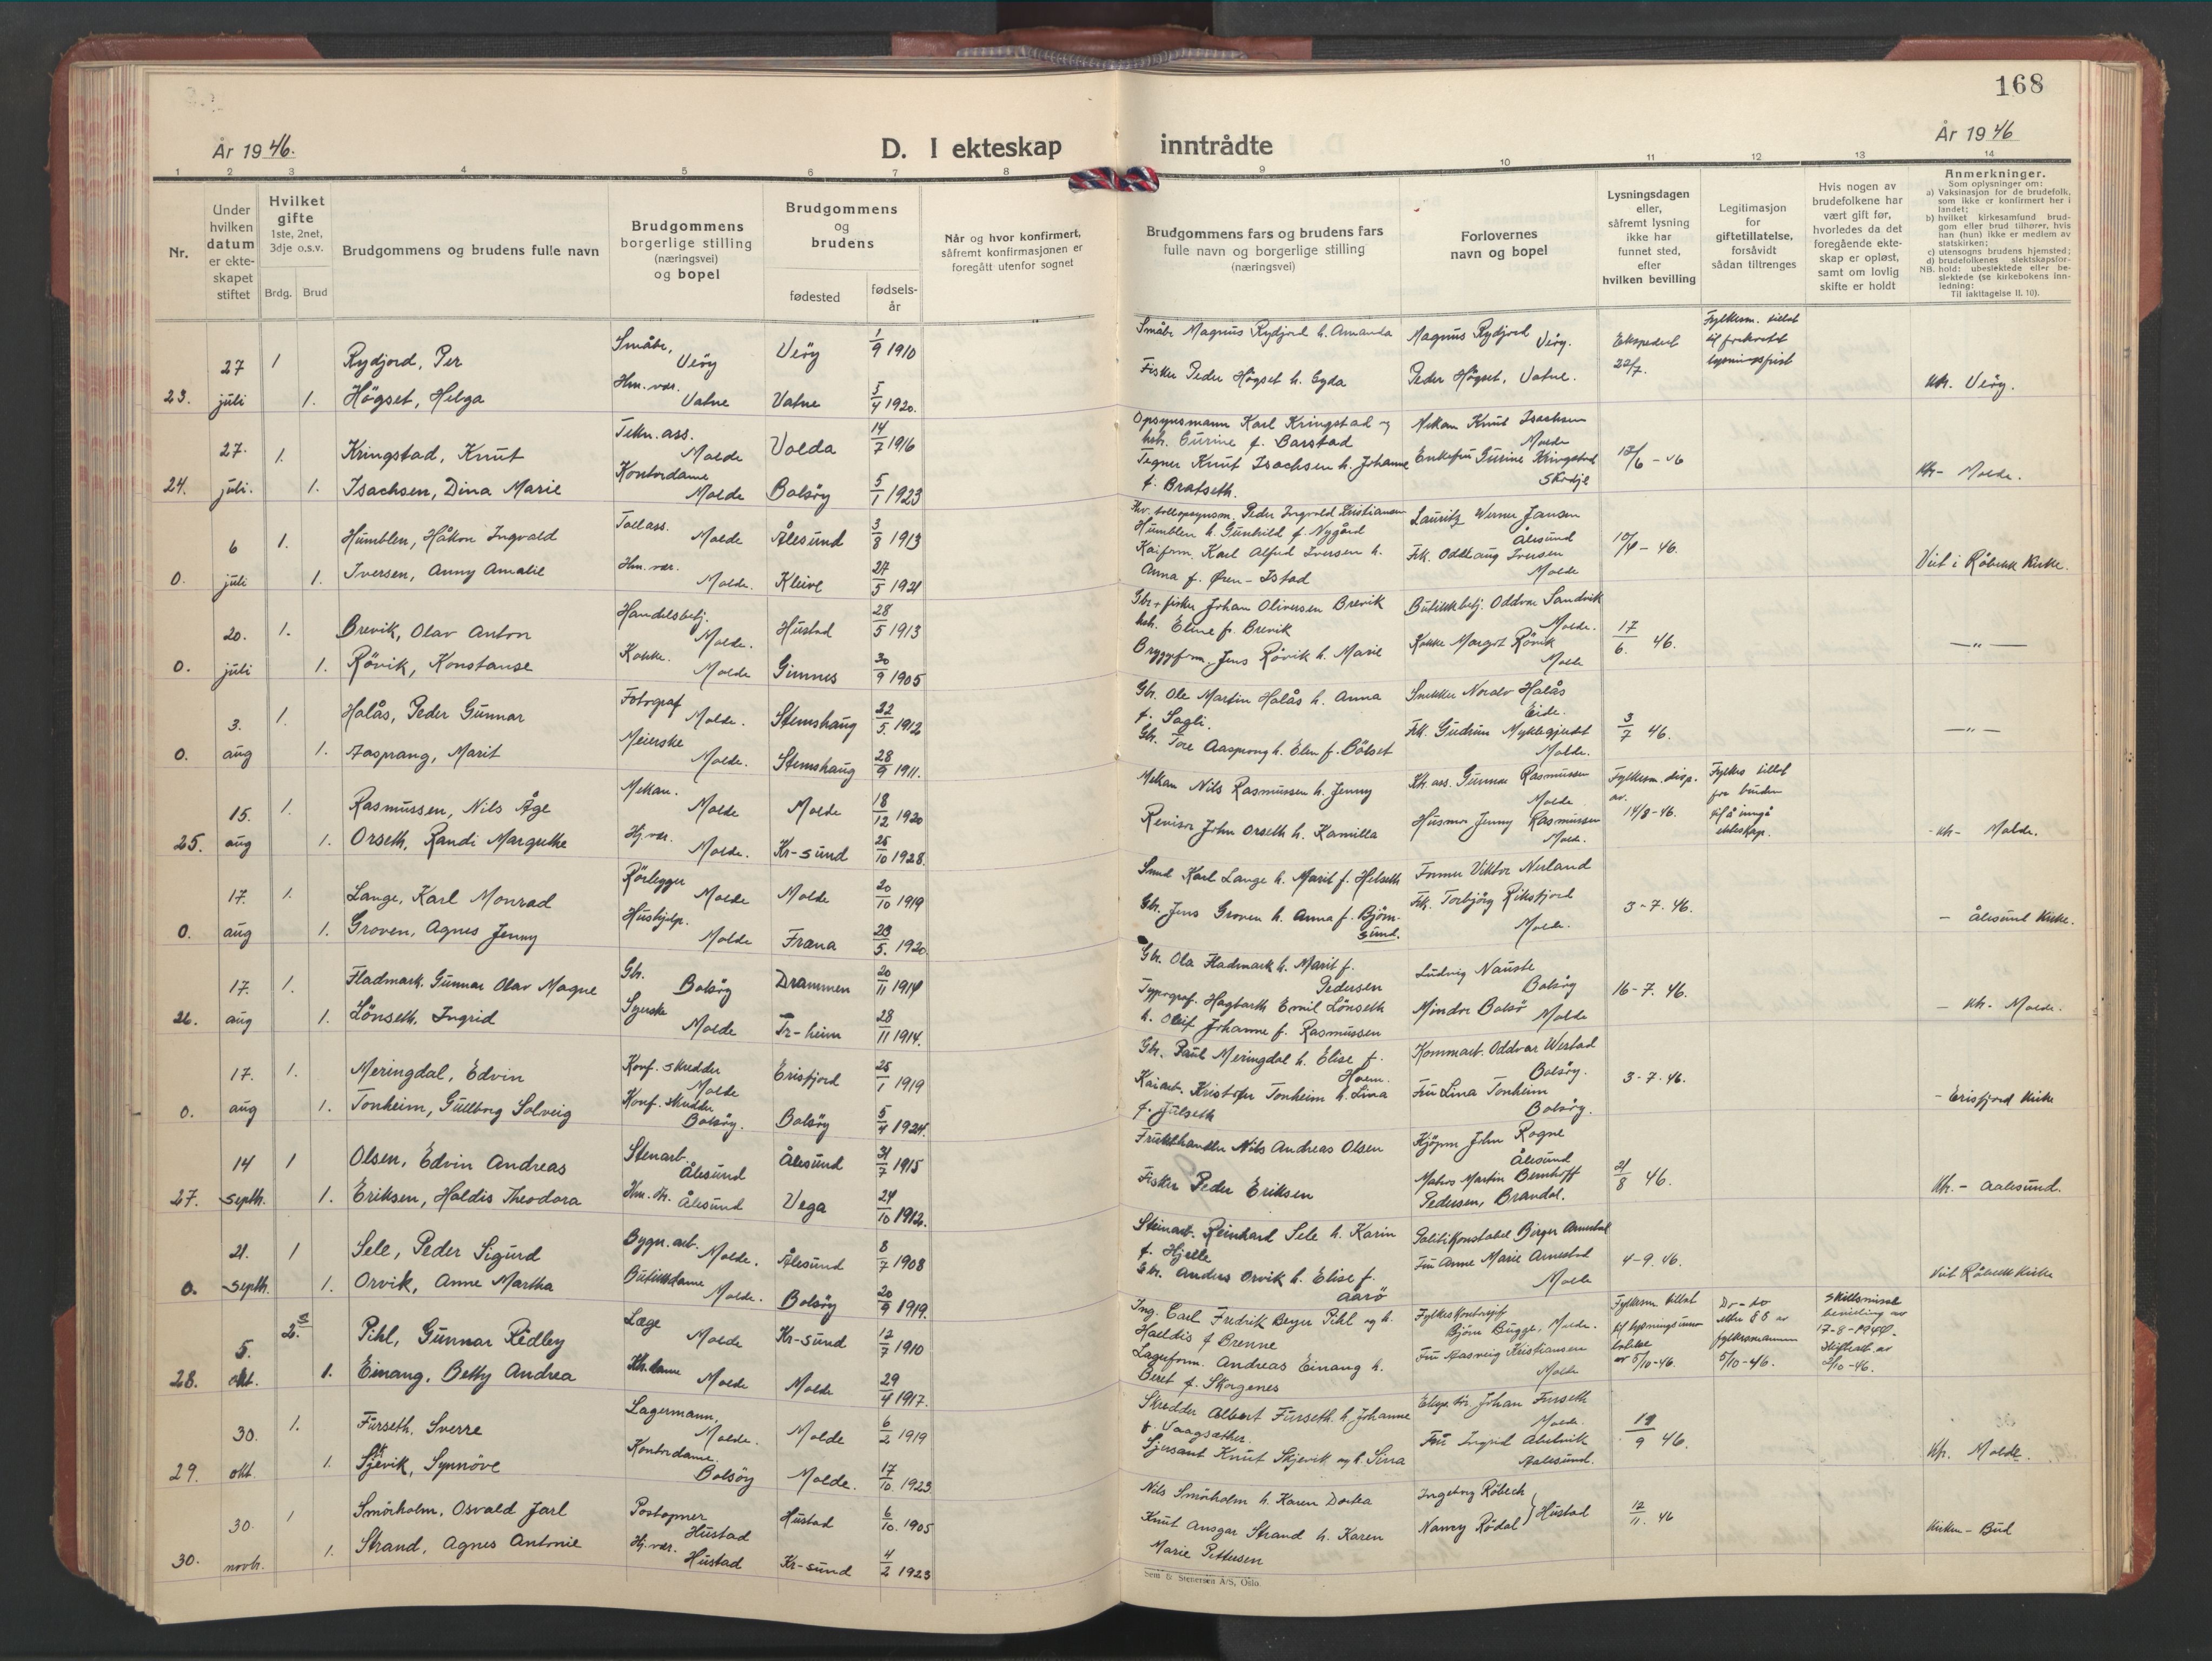 168
År 1946.
D. I ekteskap inntrådte
År 1946
1 2 3 4 5 6 7 8 9 10 11 12 13 14
Nr.
Under hvilken datum er ekteskapet stiftet
Hvilket gifte 1ste, 2net, 3dje o.s.v.
Brdg. Brud
Brudgommens og brudens fulle navn
Brudgommens borgerlige stilling (næringsvei) og bopel
Brudgommens og brudens
fødested
fødsels-år
Når og hvor konfirmert, såfremt konfirmasjonen er foregått utenfor sognet
Brudgommens fars og brudens fars fulle navn og borgerlige stilling (næringsvei)
Forlovernes navn og bopel
Lysningsdagen eller, såfremt lysning ikke har funnet sted, efter hvilken bevilling
Legitimasjon for giftetillatelse, forsåvidt sådan tiltrenges
Hvis nogen av brudefolkene har vært gift før, hvorledes da det foregående ekteskap er opløst, samt om lovlig skifte er holdt
Anmerkninger.
Som oplysninger om:
a) Vaksinasjon for de brudefolk, som ikke er konfirmert her i landet;
b) hvilket kirkesamfund brudgom eller brud tilhører, hvis han (hun) ikke er medlem av statskirken;
c) utensogns brudens hjemsted;
d) brudefolkenes slektskapsforhold: ubeslektede eller beslektede (se kirkebokens innledning:
NB.
Til iakttagelse II. 10).
27 1 Rydjord, Per Småbr. Veöy Veöy 1/9 1910 Småbr Magnus Rydjord h. Amanda Magnus Rydjord Veöy. Ekspedert 22/7. Fylkesm. tillat til forkortet lysningsfrist
23. juli 1. Högset, Helga Hm. vær. Vatne Vatne 5/4 1920. Fisker Peder Högset h. Gyda Peder Högset, Vatne. kh. Veöy.
27. 1. Kringstad, Knut Tekn. ass. Molde Volda 14/7 1916 Opsynsmann Karl Kringstad og hst. Gurine f. Barstad Mekan Knut Isachsen Molde
24. juli. 1. Isachsen, Dina Marie Kontordame Molde Bolsöy 5/1 1923 Tegner Knut Isachsen h. Johanne f. Bratseth. Enkefru Gurine Kringstad Skodje 12/6 - 46 kh - Molde.
6 1. Humblen, Håkon Ingvald Tollass. Molde Ålesund 3/8 1913 Peder Ingvald Kristiansen Humblen h. Gunhild f. Nygård Lauritz Werner Jansen Ålesund
0. juli 1. Iversen, Anny Amalie Hm. vær. Molde. Kleive 27/5 1921 Kaiform. Karl Alfred Iversen h. Anna f. Øren-Istad Frk. Oddlaug Iversen Molde Viet i Röbekk Kirke.
20. 1. Brevik, Olav Anton Handelsbetj. Molde. Hustad 28/5 1913 Gbr. + fisker Johan Oliversen Brevik hst. Eline f. Brevik Butikkbetj. Oddvar Sandvik Molde.
0. juli 1. Rövik, Konstanse Kokke. Molde Gimnes 30/9 1905 Bryggefm. Jens Rövik h. Marie Kokke Margot Rövik Molde 17/6. 46. — " —
3. 1. Halås, Peder Gunnar Fotograf Molde. Stemshaug 22/5 1912 Gbr. Ole Martin Halås h. Anna f. Sagli. Snekker Nordv Halås Eide.
0. aug 1. Aasprang, Marit Meierske Molde. Stemshaug 28/9 1911. Gbr. Tore Aasprang h. Elen f. Bölset Frk. Gudrun Myklegjerdet Molde. 3/7 46. — " —
15. 1. Rasmussen, Nils Åge Mekan. Molde Molde 18/12 1920 Mekan Nils Rasmussen h. Jenny Kh. ass. Gunnar Rasmussen Molde Fylkesm. disp. av. 14/8-46. Fylkes tillat for bruden til å inngå ekteskap.
25. aug 1. Orseth, Randi Margrethe Hj. vær. Molde. Kr-sund 25/10 1928. Revisor John Orseth h. Kamilla Husmor Jenny Rasmussen Molde. kh - Molde.
17. 1. Lange, Karl Monrad Rörlegger Molde Molde 20/10 1919 Smed Karl Lange h. Marit f. Helseth Former Viktor Nerland
0. aug 1. Groven, Agnes Jenny Hushjelp. Molde Fræna 23/5. 1920. Gbr. Jens Groven h. Anna f. Björnsund. Frk. Torbjörg Riksfjord Molde. 3-7.46. - Ålesund Kirke.
17. 1. Fladmark. Gunnar Olav Magne Gbr. Bolsöy Drammen 20/11 1914 Gbr. Ola Fladmark h. Marit f. Pedersen Ludvig Nauste Bolsöy 16-7.46.
26. aug 1. Lönseth, Ingrid Syerske Molde Tr-heim 28/11 1914. Typograf. Hagbarth Emil Lönseth h. Oleif Johanne f. Rasmussen Mindor Bolsö Molde - kh - Molde.
17. 1. Meringdal, Edvin Konf. skredder Molde Erisfjord 25/1 1919 Gbr. Paul Meringdal h. Elise f. Holm. Kommarb. Oddvar Westad Bolsöy. 3-7.46.
0. aug 1. Tonheim, Gullborg Solveig Konf. skredder Bolsöy. Bolsöy 5/4 1924. Kaiarb. Kristofer Tonheim h. Lina f. Julseth Fru Lina Tonheim Bolsöy. - Erisfjord Kirke
14 1 Olsen, Edvin Andreas Stenarb. Ålesund Ålesund 31/7 1915 Frukthandler Nils Andreas Olsen Kjöpm John Rogne Ålesund
27. septb. 1. Eriksen, Haldis Theodora Ålesund Vega 24/10 1912. Fisker Peder Eriksen Matros Martin Bernhoff Pedersen, Brandal. 21/8 46. kh. - Aalesund.
21. 1 Sele, Peder Sigurd Bygn. arb. Molde. Ålesund 8/7 1908 Steinarb. Reinhard Sele h. Karin f. Hjelle Politikonstabel Birger Arnestad
0. septb. 1. Orvik, Anne Martha Butikkdame Molde. Bolsöy 20/9 1919. Gbr. Anders Orvik h. Elise f. Aarö Fru Anne Marie Arnestad Molde 4-9.46. Viet Röbekk Kirke
5. 2. Pihl, Gunnar Ridley Læge Molde Kr-sund 12/7 1910 Ing. Carl Fredrik Beyer Pihl og h. Haldis f Brenne Björn Bugge, Molde. Fylkesm. tillat av 5/10-46. fylkesmannen 5/10-46. Skillsmisse bevilling av 17-8-1944.
28. okt. 1. Einang, Betty Andrea Kh. dame Molde Molde 29/4 1917. Lagerform. Andreas Einang h. Beret f. Skorgenes Fru Aasveig Kristiansen Molde
30. 1. Furseth, Sverre Lagermann, Molde. Molde 6/2 1919 Skredder Albert Furseth. h. Johanne f. Vaagsæther. Johan Furseth Molde.
29. okt. 1. Sjevik, Synnöve Kontordame. Bolsöy Molde. 17/10. 1923 Sjersant Knut Skjevik og h. Sina Fru Ingrid Aalesund. 19/9 46. Kh. Molde.
30. 1 Smörholm, Osvald Jarl Postopner Hustad Hustad 6/10. 1905 Nils Smörholm h. Karen Dortea Ingeborg Röbech
30. novb. 1. Strand, Agnes Antonie Hj. vær. Hustad Kr-sund 4/2 1923 Knut Ansgar Strand h. Karen Marie Pettersen Nancy Rödal } Hustad 12/11. 46 Kirken - Bud
Sem & Stenersen A/S, Oslo.